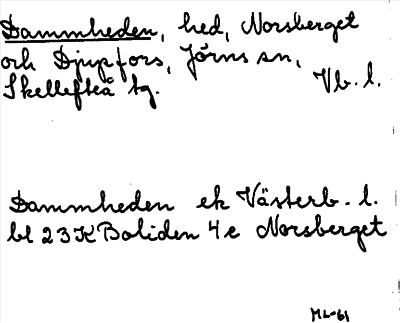 Dammheden, hed, Norsberget
och Djupfors, Jörns sn,
Skellefteå tg.
Vb. l.
Dammheden ek Västerb. l.
bl 23K Boliden 4e Norsberget
ML-61